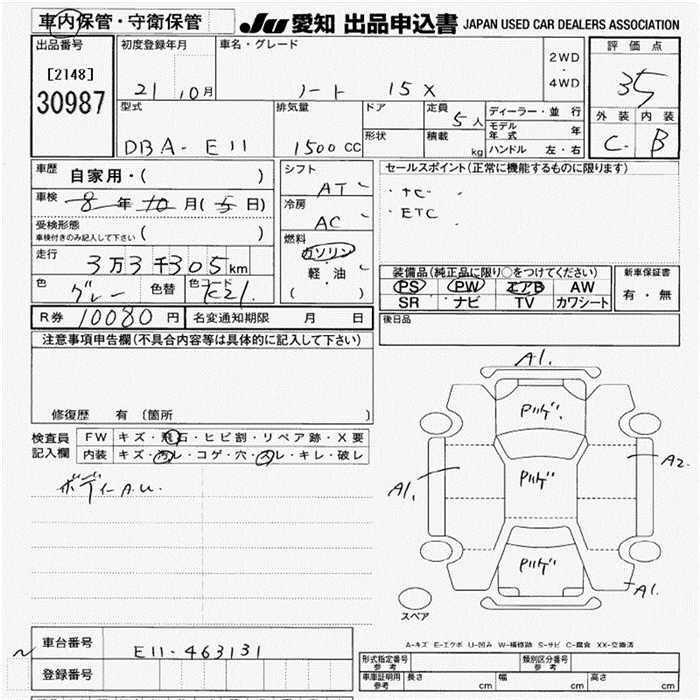 車内保管・守衛保管 JU 愛知 出品申込書 JAPAN USED CAR DEALERS ASSOCIATION
出品番号 初度登録年月 車名・グレード 2WD ・ 4WD 評価点
[2148] 21 10月 ノート 15X 3.5
30987 型式 排気量 ドア 定員 5人 ディーラー・並行 外装 内装
形状 積載 kg モデル年式 年
DBA-E11 1500 CC ハンドル 左・右 C B
車歴 自家用・( ) シフト AT セールスポイント(正常に機能するものに限ります)
車検 8年10月(5日) 冷房 AC ・TC
・ETC
受検形態 車検付きのみ記入して下さい ( ) 燃料 ガソリン
走行 3万3千305km 軽・油 装備品(純正品に限り○をつけてください) 新車保証書
色 グレー 色替 色コード K21 ( ) PS PW エアB AW 有・無
SR ナビ TV カワシート
R券 10080円 名変通知期限 月 日 後日品
注意事項申告欄(不具合内容等は具体的に記入して下さい)
A1.
Pリゲ
修復歴 有〔箇所 〕
検査員 FW キズ・飛石・ヒビ割・リペア跡・X要
記入欄 内装 キズ・汚レ・コゲ・穴・スレ・キレ・破レ
A2
Pリゲ
A1.
ボディーA.U.
Pリゲ
A1.
スペア
A-キズ E-エクボ U-凹み W-補修跡 S-サビ C-腐食 XX-交換済
車台番号 E11-463131
型式指定番号 参考 類別区分番号 参考
登録番号 車庫証明用 参考 長さ cm 幅 cm 高さ cm